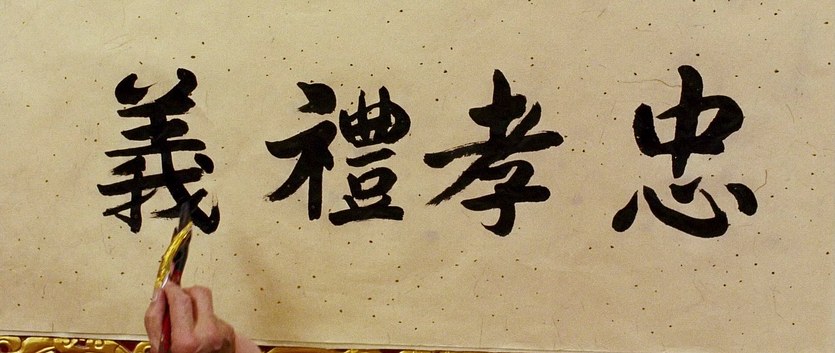 忠孝禮義